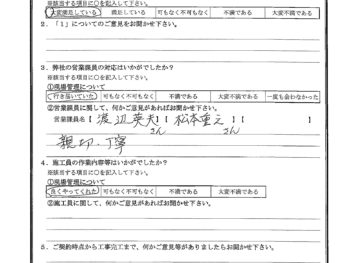 ※該当する項目に○を記入して下さい。
大変満足している 満足している 可もなく不可もなく 不満である 大変不満である
2．「1」についてのご意見をお聞かせ下さい。
3．弊社の営業課員の対応はいかがでしたか？
※該当する項目に○を記入して下さい。
①現場管理について
行き届いていた 可もなく不可もなく 不満である 大変不満である 一度も会わなかった
②営業課員に関して、何かご意見があればお聞かせ下さい。
営業課員名【 渡辺英夫さん 】【 松本重之さん 】【 】
親切、丁寧
4．施工員の作業内容等はいかがでしたか？
※該当する項目に○を記入して下さい。
①現場管理について
良くやってくれた 可もなく不可もなく 不満である 大変不満である
②施工員に関して、何かご意見があればお聞かせ下さい。
5．ご契約時点から工事完工まで、何かご意見等がありましたらお聞かせ下さい。